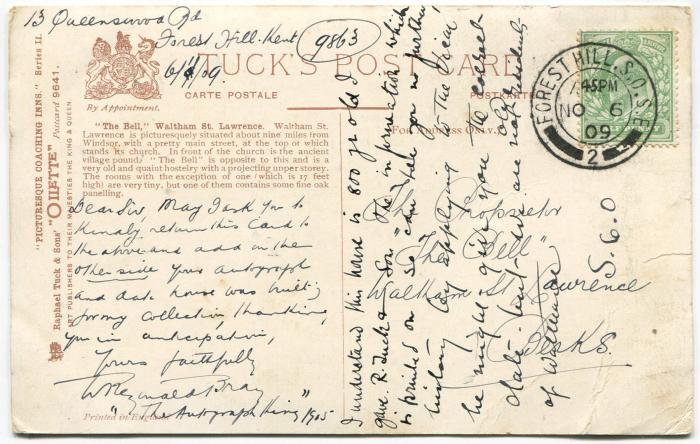 13 Queenswood Rd
Forest Hill. Kent
6/11/09
9863
TUCK'S POST CARD
By Appointment.
CARTE POSTALE
POSTKARTE
For Address Only.
"PICTURESQUE COACHING INNS." Series II.
Raphael Tuck & Sons' "OILETTE" Postcard 9641.
ART PUBLISHERS TO THEIR MAJESTIES THE KING & QUEEN.
"The Bell," Waltham St. Lawrence. Waltham St.
Lawrence is picturesquely situated about nine miles from
Windsor, with a pretty main street, at the top of which
stands its church. In front of the church is the ancient
village pound. "The Bell" is opposite to this and is a
very old and quaint hostelry with a projecting upper storey.
The rooms with the exception of one (which is 17 feet
high) are very tiny, but one of them contains some fine oak
panelling.
Dear Sir, May I ask you to
kindly return this Card to
the above and add on the
other side your autograph
and date house was built;
for my collection, thanking
you in anticipation,
Yours faithfully
W Reginald Bray
"The Autograph King" 1905
Printed in England.
The Proprietor
"The Bell"
Waltham St Lawrence
Berks.
I understand this house is 800 yrs old I
gave R. Tuck & Son the information which
is printed on so can tell you no further
history by applying to the Vicar
he might give you the correct
date but he is an
of Waltham
S. 6. 0
FOREST HILL S.O. S.E.
7.45PM
NO 6
09
2